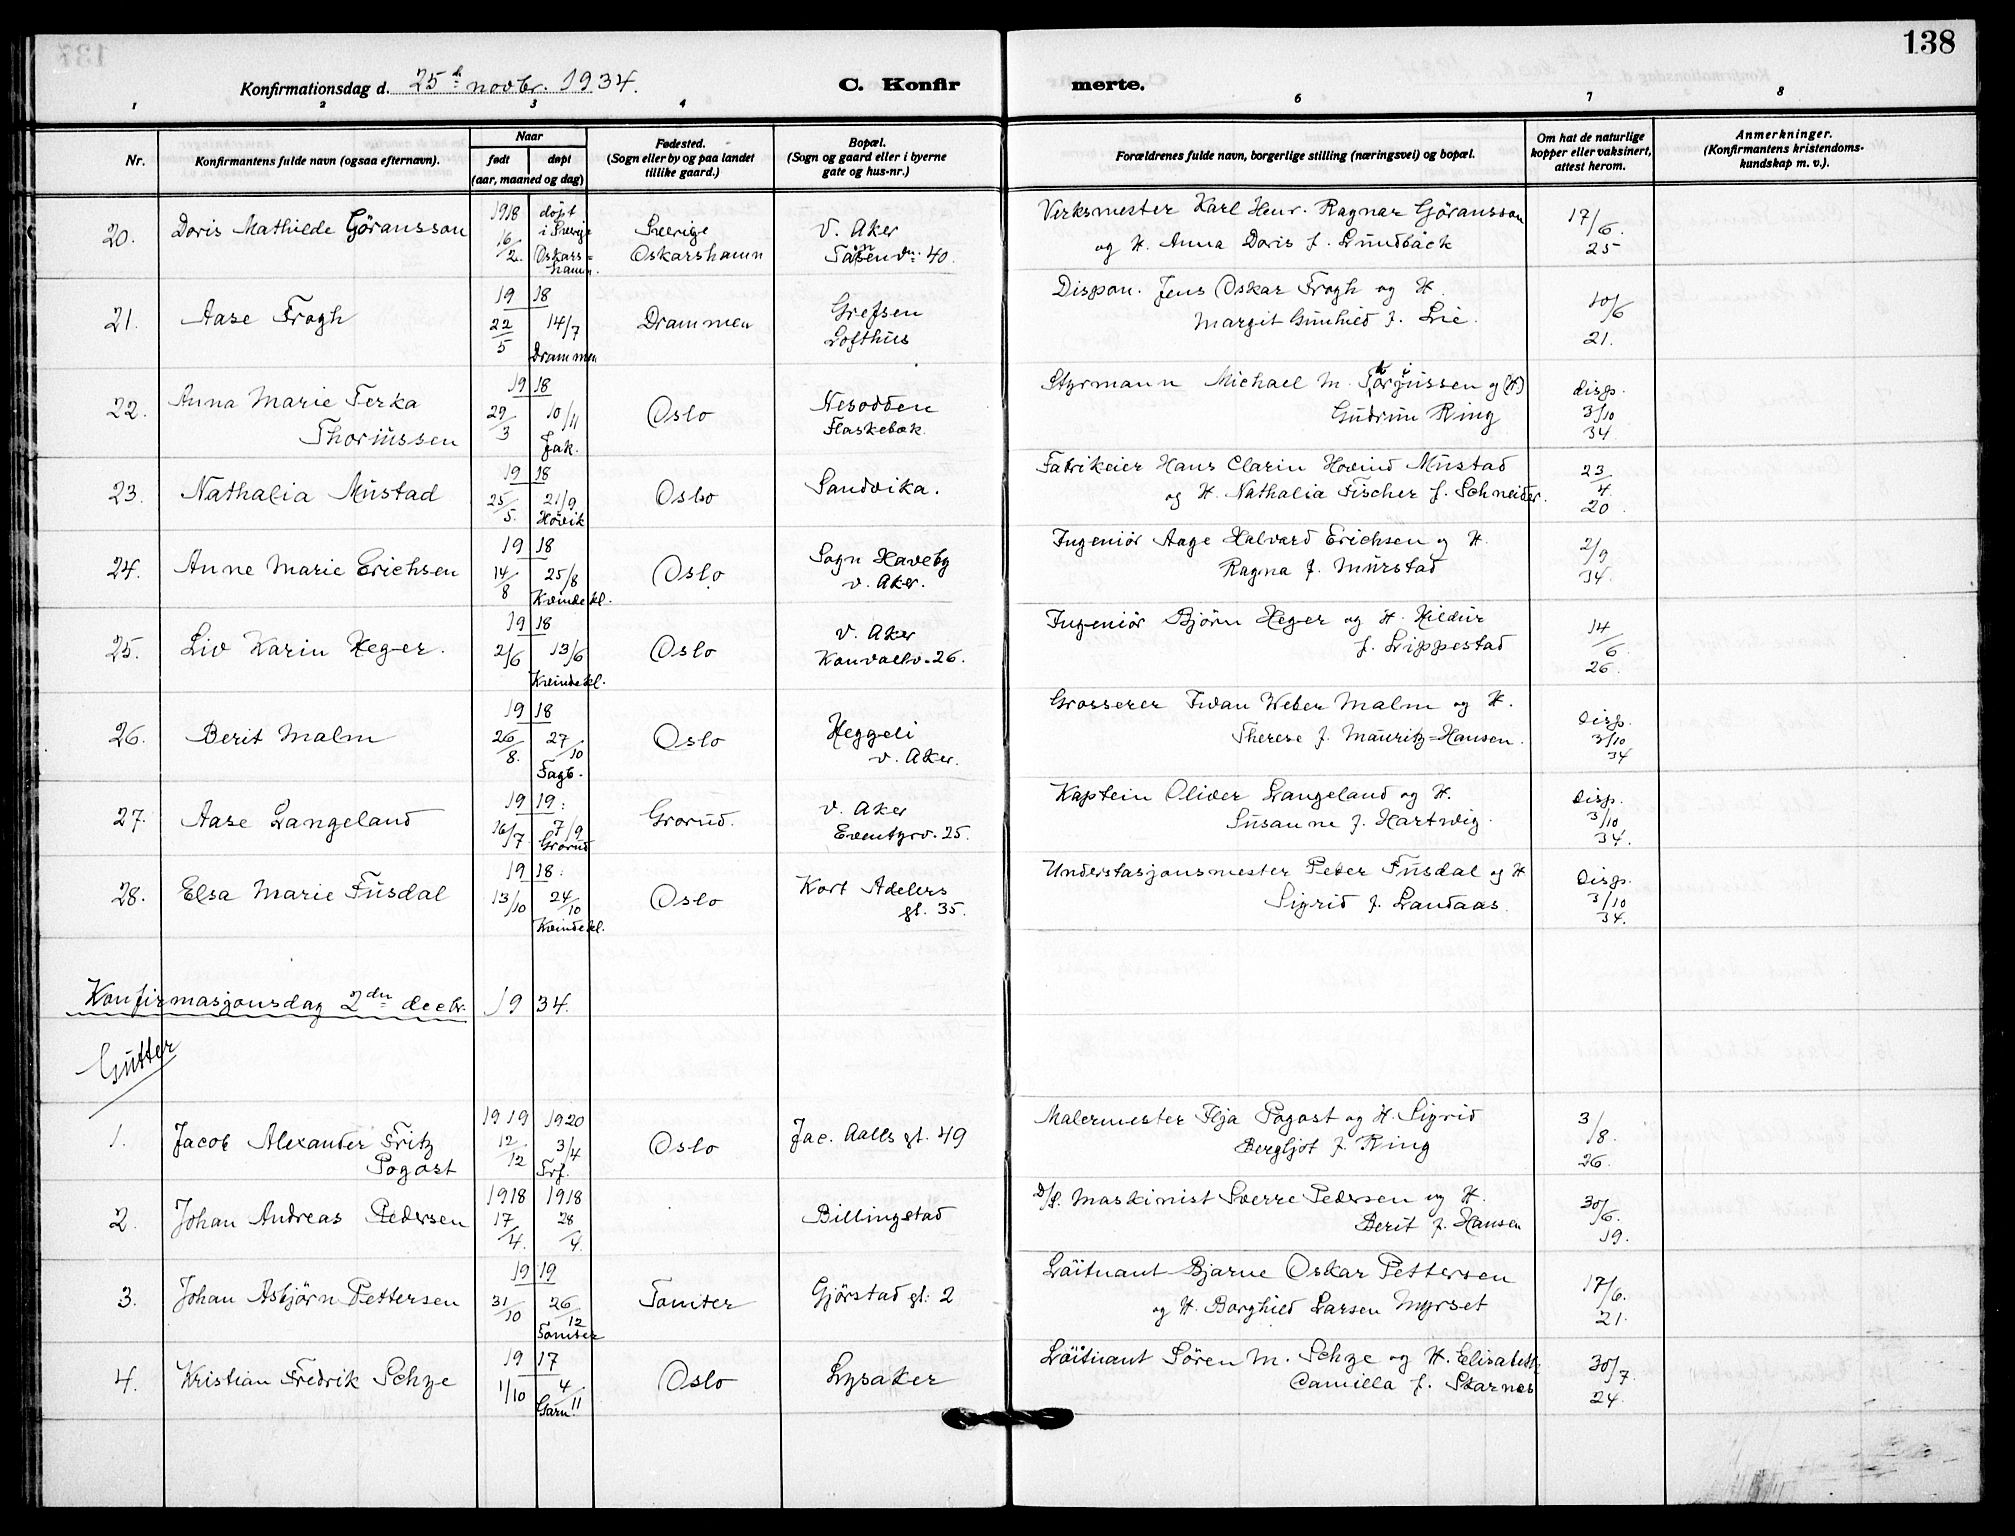 138
Konfirmationsdag d. 25de novbr. 1934.
C. Konfirmerte.
1 2 3 4 6 7 8
Nr.
Konfirmantens fulde navn (ogsaa efternavn).
Naar
født
døpt
(aar, maaned og dag)
Fødested.
(Sogn eller by og paa landet
tillike gaard.)
Bopæl.
(Sogn og gaard eller i byerne
gate og hus-nr.)
Forældrenes fulde navn, borgerlige stilling (næringsvei) og bopæl.
Om hat de naturlige
kopper eller vaksinert,
attest herom.
Anmerkninger.
(Konfirmantens kristendoms-
kundskap m. v.).
20. Doris Mathilde Göransson
1918 16/2
døpt i Sverige Oskars=hamn.
Sverige
Oskarshamn
V. Aker
Tåsenvn. 40.
Verksmester Karl Henr. Ragnar Göransson
og H. Anna Doris f. Lundbäck
17/6. 25
21. Aase Frogh
1918 22/5 14/7 Drammen
Drammen
Grefsen
Lofthus
Dispon. Jens Oskar Frogh og H.
Margit Gunhild f. Lie.
10/6 21.
22. Anna Marie Terka
Thoriussen
1918 29/3 10/11 Jak.
Oslo
Nesodden
Flaskebek.
Styrmann Michael M. Thoriussen og (H)
Gudrun Ring
disp. 3/10 34
23. Nathalia Mustad
1918 25/5. 21/9 Høvik
Oslo
Sandvika.
Fabrikeier Hans Clarin Hovind Mustad
og H. Nathalia Fischer f. Schneider.
23/4. 20.
24. Anne Marie Erichsen
1918 14/8 25/8 Kvindekl.
Oslo
Sogn Haveby
v. Aker.
Ingeniør Aage Halvard Erichsen og H.
Ragna f. Murstad
2/9 34.
25. Liv Karin Heger.
1918 2/6 13/6 Kvindekl.
Oslo
V. Aker
Konvallv. 26.
Ingeniør Bjørn Heger og H. Hildur
f. Lippestad
14/6 26.
26. Berit Malm
1918 26/8. 27/10 Fagb.
Oslo
Heggeli
v. Aker.
Grosserer Iwan Weber Malm og H.
Therese f. Mauritz=Hansen.
Disp. 3/10 34
27. Aase Langeland
1919. 16/7 7/9 Grorud
Grorud.
V. Aker
Eventyrv. 25.
Kaptein Oliver Langeland og H.
Susanne f. Hartvig.
Disp. 3/10 34.
28. Elsa Marie Fusdal
1918. 13/10 24/10 Kvindekl.
Oslo
Kort Adelers
gt. 35.
Understasjonsmester Peder Fusdal og H
Sigrid f. Landaas.
Disp. 3/10 34.
Konfirmasjonsdag 2den decbr. 1934.
Gutter
1. Jacob Alexander Fritz
Pogost
1919 12/12 1920 3/4 Frf.
Oslo
Jac. Aalls gt. 49
Malermester Ilja Pogost og H. Sigrid
Bergljot f. Ring
3/8. 26.
2. Johan Andreas Pedersen
1918 17/4. 1918 28/4.
Billingstad
D/S. Maskinist Sverre Pedersen og H.
Berit f. Hansen
30/6. 19.
3. Johan Asbjørn Pettersen
1919 31/10 26/12 Tomter
Tomter
Gjørstad gt. 2
Løitnant Bjarne Oskar Pettersen
og H. Borghild Larsen Myrset
17/6. 21.
4. Kristian Fredrik Schye
1917 1/10 4/11 Garn.
Oslo
Lysaker
Løitnant Søren M. Schye og H. Elisabeth
Camilla f. Starnes
30/7. 24.